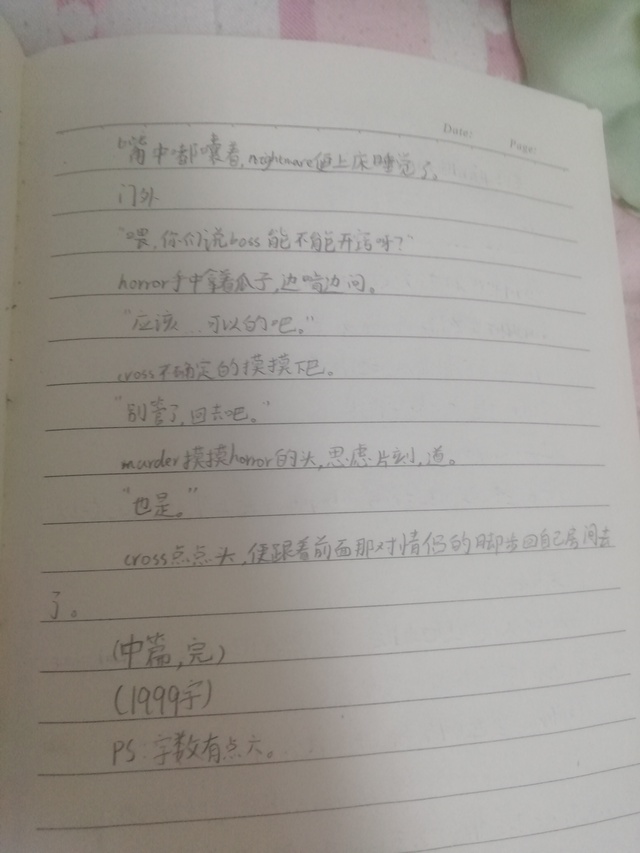 Date:    Page:
嘴中嘟囔着,nightmare便上床睡觉了。
门外
"喂,你们说boss能不能开窍呀?"
horror手中拿着瓜子,边啃边问。
"应该…可以的吧。"
cross不确定的摸摸下巴。
"别管了,回去吧。"
murder摸摸horror的头,思虑片刻,道。
"也是。"
cross点点头,便跟着前面那对情侣的脚步回自己房间去
了。
(中篇,完)
(1999字)
PS:字数有点六。